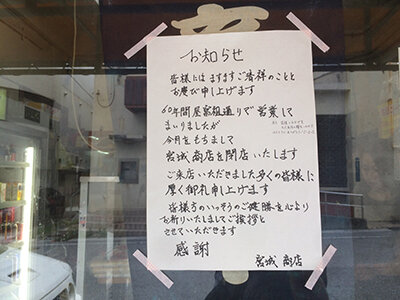 お知らせ
皆様にはますますご清祥のことと
お慶び申し上げます
60年間屋富祖通りで営業して
まいりましたが
今月をもちまして
宮城商店を閉店いたします
ご来店いただきました多くの皆様に
厚く御礼申し上げます
皆様方のいっそうのご健勝を心より
お祈りいたしましてご挨拶と
させていただきます
感謝
宮城 商店